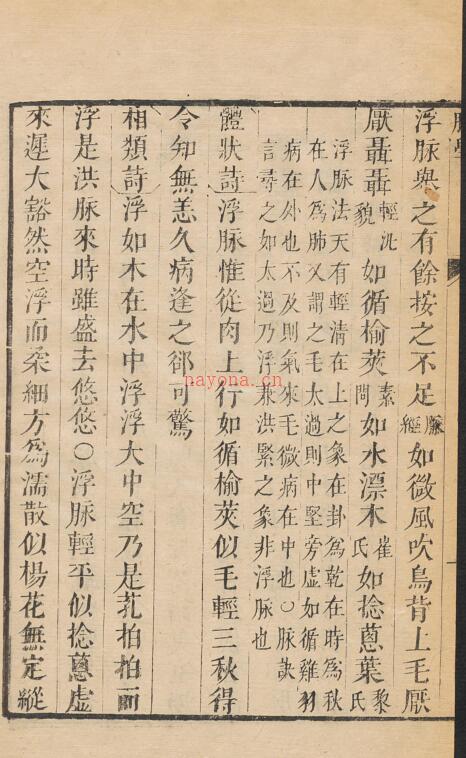 浮脉與之有餘按之不足脈經如微風吹鳥背上毛厭
厭聶聶輕汎貌如循榆莢素問如水漂木崔氏如捻蔥葉黎氏
浮脉法天有輕清在上之象在卦爲乾在時爲秋
在人爲肺又謂之毛太過則中堅旁虛如循雞羽
病在外也不及則氣來毛微病在中也○脉訣
言尋之如太過乃浮兼洪緊之象非浮脉也
體狀詩浮脉惟從肉上行如循榆莢似毛輕三秋得
令知無恙久病逢之郤可驚
相類詩浮如木在水中浮浮大中空乃是芤拍拍而
浮是洪脉來時雖盛去悠悠○浮脉輕平似捻蔥虛
來遲大豁然空浮而柔細方爲濡散似楊花無定蹤
nayona.cn